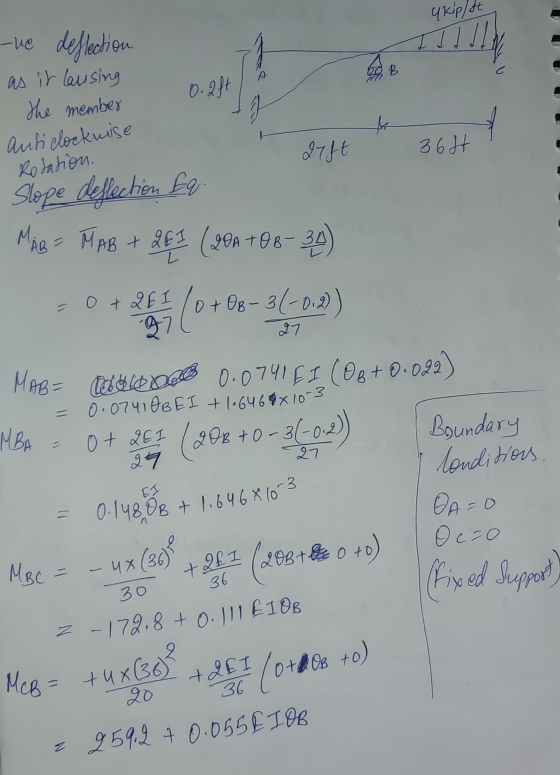 -ve deflection
as it causing
the member
anticlockwise
Rotation.
4kip/ft
0.2ft
A
B
C
27ft
36ft
Slope deflection Eq.
MAB = M̅AB + 2EI/L (2θA + θB - 3Δ/L)
= 0 + 2EI/27 (0 + θB - 3(-0.2)/27)
MAB = 0.0741EI (θB + 0.022)
= 0.0741θBEI + 1.646×10⁻³
MBA = 0 + 2EI/27 (2θB + 0 - 3(-0.2)/27)
= 0.148EIθB + 1.646×10⁻³
MBC = -4×(36)²/30 + 2EI/36 (2θB + 0 + 0)
= -172.8 + 0.111EIθB
MCB = +4×(36)²/20 + 2EI/36 (0 + θB + 0)
= 259.2 + 0.055EIθB
Boundary
Conditions.
θA = 0
θC = 0
(Fixed Support)